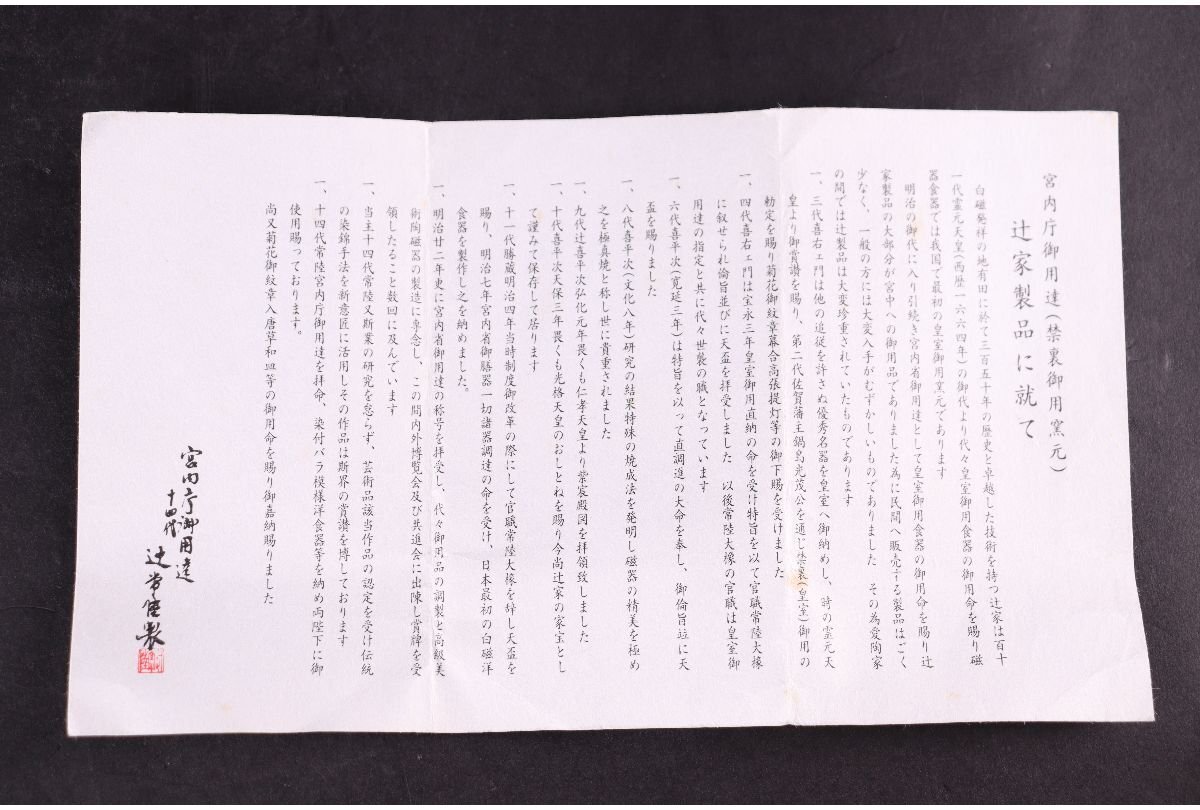 宮内庁御用達(禁裏御用窯元)
辻家製品に就て
白磁発祥の地有田に於て三百五十年の歴史と卓越した技術を持つ辻家は百十
一代霊元天皇(西歴一六六四年)の御代より代々皇室御用食器の御用命を賜り磁
器食器では我国で最初の皇室御用窯元であります
明治の御代に入り引続き宮内省御用達として皇室御用食器の御用命を賜り辻
家製品の大部分が宮中への御用品でありました為に民間へ販売する製品はごく
少なく、一般の方には大変入手がむずかしいものでありました その為愛陶家
の間では辻製品は大変珍重されていたものであります
一、三代喜右ェ門は他の追従を許さぬ優秀名器を皇室へ御納めし、時の霊元天
皇より御賞讃を賜り、第二代佐賀藩主鍋島光茂公を通じ禁裏(皇室)御用の
勅定を賜り菊花御紋章幕合高張提灯等の御下賜を受けました
一、四代喜右ェ門は宝永三年皇室御用直納の命を受け特旨を以て官職常陸大掾
に叙せられ倫旨並びに天盃を拝受しました 以後常陸大掾の官職は皇室御
用達の指定と共に代々世襲の職となっています
一、六代喜平次(寛延三年)は特旨を以って直調進の大命を奉し、御倫旨竝に天
盃を賜りました
一、八代喜平次(文化八年)研究の結果特殊の焼成法を発明し磁器の精美を極め
之を極真焼と称し世に貴重されました
一、九代辻喜平次弘化元年畏くも仁孝天皇より紫宸殿図を拝領致しました
一、十代喜平次天保三年畏くも光格天皇のおしとねを賜り今尚辻家の家宝とし
て謹みて保存して居ります
一、十一代勝蔵明治四年当時制度御改革の際にして官職常陸大掾を辞し天盃を
賜り、明治七年宮内省御膳器一切諸器調達の命を受け、日本最初の白磁洋
食器を製作し之を納めました。
一、明治廿二年更に宮内省御用達の称号を拝受し、代々御用品の調製と高級美
術陶磁器の製造に専念し、この間内外博覧会及び共進会に出陳し賞牌を受
領したること数回に及んでいます
一、当主十四代常陸又斯業の研究を怠らず、芸術品該当作品の認定を受け伝統
の染錦手法を新意匠に活用しその作品は斯界の賞讃を博しております
一、十四代常陸宮内庁御用達を拝命、染付バラ模様洋食器等を納め両陛下に御
使用賜っております。
尚又菊花御紋章入唐草和皿等の御用命を賜り御嘉納賜りました
宮内庁御用達
十四代 辻常陸製